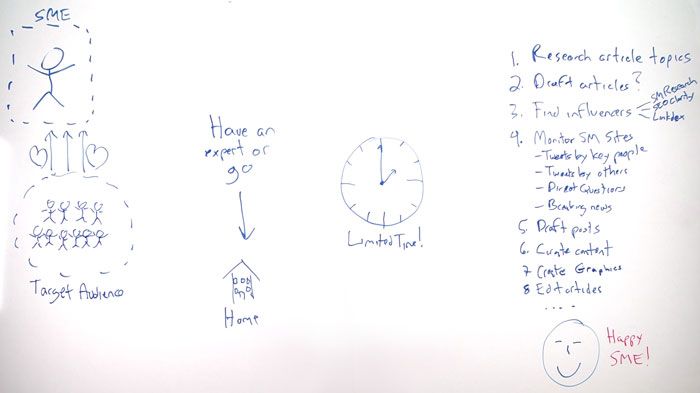 SME
Target Audience
Have an
expert or
go
Home
Limited Time!
1. Research article topics
2. Draft articles?
3. Find influencers
SM Research
SEO Clarity
Linkdex
4. Monitor SM Sites
- Tweets by key people
- Tweets by others
- Direct Questions
- Breaking news
5 Draft posts
6. Curate content
7 Create Graphics
8 Edit articles
....
Happy
SME!